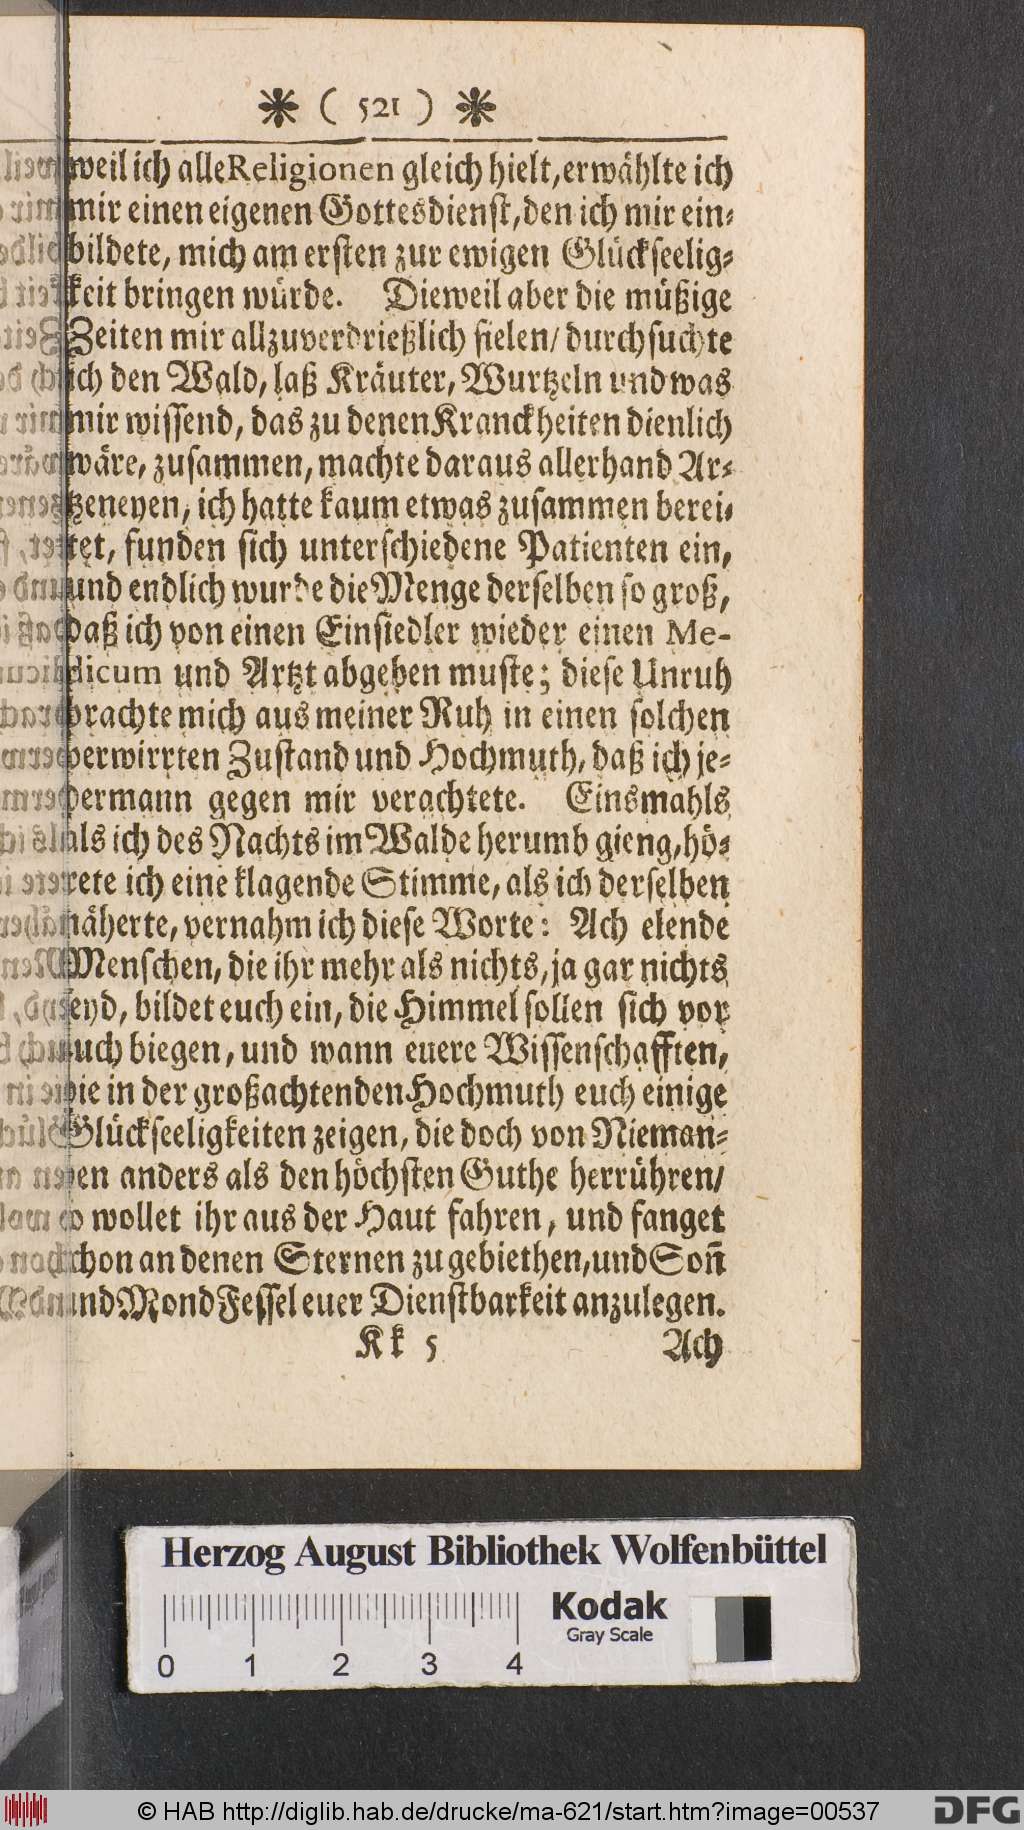 ❋ ( 521 ) ❋
weil ich alle Religionen gleich hielt, erwählte ich
mir einen eigenen Gottesdienst, den ich mir ein-
bildete, mich am ersten zur ewigen Glückseelig-
keit bringen würde. Dieweil aber die müßige
Zeiten mir allzuverdrießlich fielen/ durchsuchte
ich den Wald, laß Kräuter, Wurtzeln und was
mir wissend, das zu denen Kranckheiten dienlich
wäre, zusammen, machte daraus allerhand Ar-
tzeneyen, ich hatte kaum etwas zusammen berei-
tet, funden sich unterschiedene Patienten ein,
und endlich wurde die Menge derselben so groß,
daß ich von einen Einsiedler wieder einen Me-
dicum und Artzt abgeben muste; diese Unruh
brachte mich aus meiner Ruh in einen solchen
verwirrten Zustand und Hochmuth, daß ich je-
dermann gegen mir verachtete. Einsmahls
als ich des Nachts im Walde herumb gieng, hö-
rete ich eine klagende Stimme, als ich derselben
näherte, vernahm ich diese Worte: Ach elende
Menschen, die ihr mehr als nichts, ja gar nichts
seyd, bildet euch ein, die Himmel sollen sich vor
euch biegen, und wann euere Wissenschafften,
die in der großachtenden Hochmuth euch einige
Glückseeligkeiten zeigen, die doch von Nieman-
den anders als den höchsten Guthe herrühren/
so wollet ihr aus der Haut fahren, und fanget
schon an denen Sternen zu gebiethen, und Soñ
und Mond Fessel euer Dienstbarkeit anzulegen.
Kk 5 Ach
Herzog August Bibliothek Wolfenbüttel
Kodak
Gray Scale
0 1 2 3 4
© HAB http://diglib.hab.de/drucke/ma-621/start.htm?image=00537
DFG